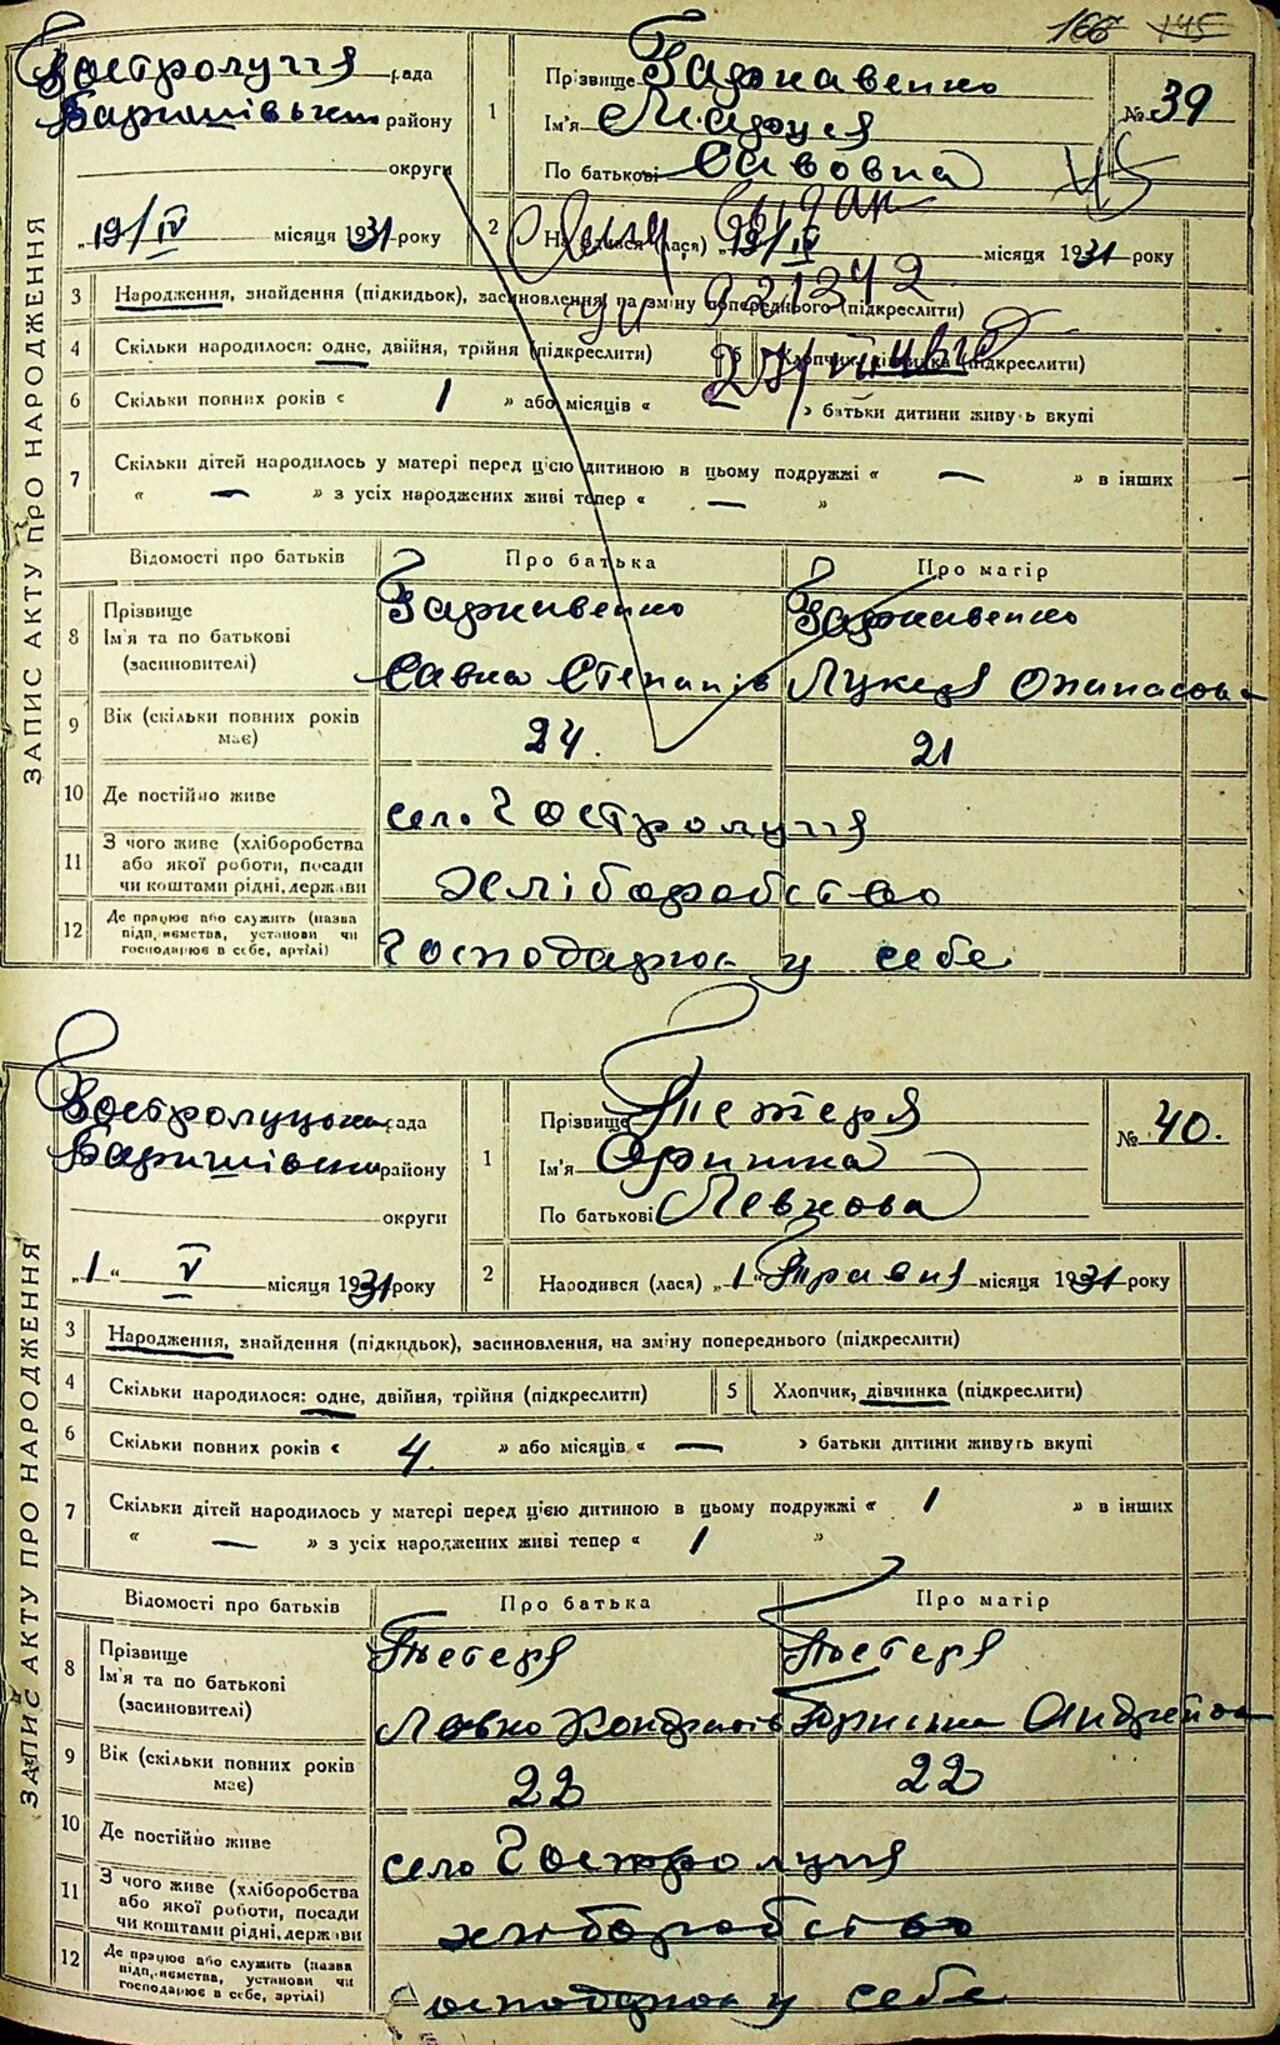 166 145
Гостролуччя рада
Баришівськ району
округи
„19/IV місяця 1931 року
1
Прізвище Заржавенко
Ім'я Маруся
По батькові Савовна
№ 39
2 Народився (лася) „19/IV місяця 1931 року
3 Народження, знайдення (підкидьок), засиновлення, на зміну попереднього (підкреслити)
4 Скільки народилося: одне, двійня, трійня (підкреслити) 5 Хлопчик, дівчинка (підкреслити)
6 Скільки повних років « 1 » або місяців « — » батьки дитини живуть вкупі
7 Скільки дітей народилось у матері перед цією дитиною в цьому подружжі « — » в інших
« — » з усіх народжених живі тепер « — »
Відомості про батьків Про батька Про матір
8 Прізвище Ім'я та по батькові (засиновителі)
Заржавенко Заржавенко
Савка Степанів Лукея Опанасова
9 Вік (скільки повних років має) 24. 21
10 Де постійно живе село Гостролуччя
11 З чого живе (хліборобства або якої роботи, посади чи коштами рідні, держави хліборобство
12 Де працює або служить (назва підприємства, установи чи господарює в себе, артілі) Господарює у себе
ЗАПИС АКТУ ПРО НАРОДЖЕННЯ
Гостролуцька рада
Баришівськ району
округи
„1“ V місяця 1931 року
1
Прізвище Тетеря
Ім'я Оришка
По батькові Левкова
№ 40.
2 Народився (лася) „1“ Травня місяця 1931 року
3 Народження, знайдення (підкидьок), засиновлення, на зміну попереднього (підкреслити)
4 Скільки народилося: одне, двійня, трійня (підкреслити) 5 Хлопчик, дівчинка (підкреслити)
6 Скільки повних років « 4 » або місяців « — » батьки дитини живуть вкупі
7 Скільки дітей народилось у матері перед цією дитиною в цьому подружжі « 1 » в інших
« — » з усіх народжених живі тепер « 1 »
Відомості про батьків Про батька Про матір
8 Прізвище Ім'я та по батькові (засиновителі)
Тетеря Тетеря
Левко Кондратів Андрейова
9 Вік (скільки повних років має) 22 22
10 Де постійно живе село Гостролуччя
11 З чого живе (хліборобства або якої роботи, посади чи коштами рідні, держави хліборобство
12 Де працює або служить (назва підприємства, установи чи господарює в себе, артілі) Господарює у себе
ЗАПИС АКТУ ПРО НАРОДЖЕННЯ